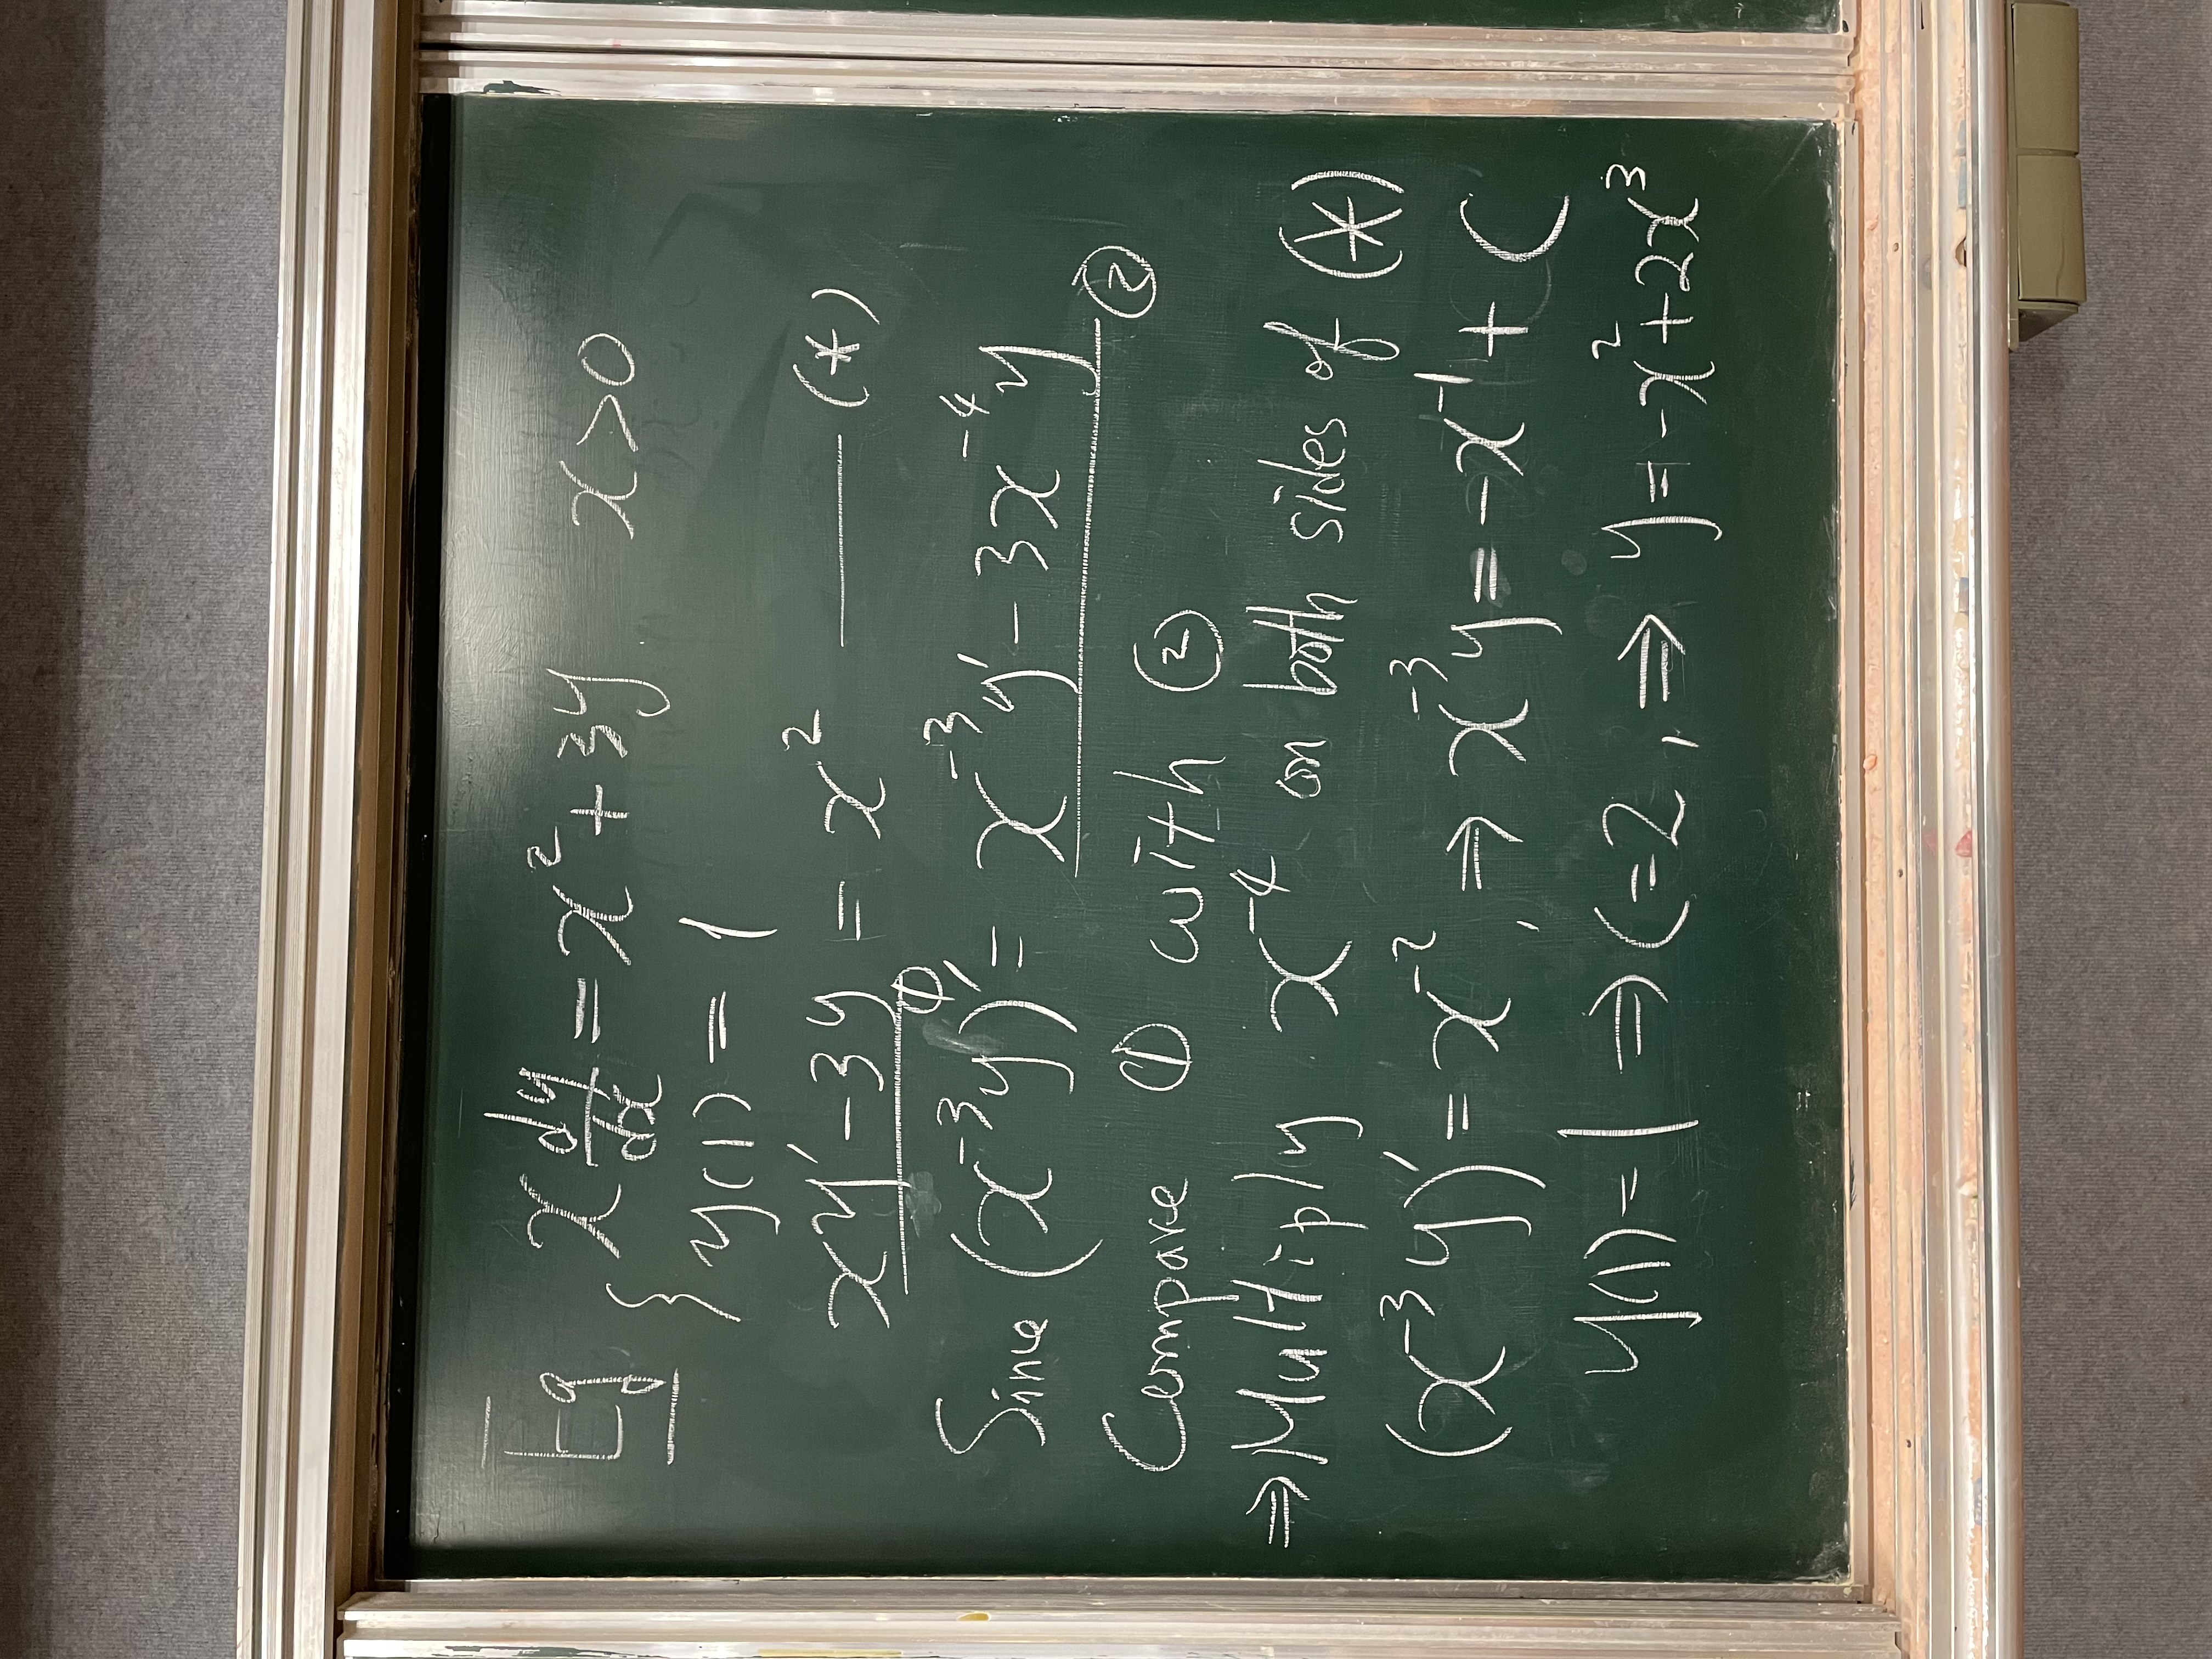 Eg { x dy/dx = x² + 3y x>0
y(1) = 1
xy' - 3y ① = x² —— (*)
Sine (x⁻³y)' = x⁻³y' - 3x⁻⁴y ②
Compare ① with ②
⇒ Multiply x⁻⁴ on both sides of (*)
(x⁻³y)' = x⁻², ⇒ x⁻³y = -x⁻¹ + C
y(1) = 1 ⇒ C = 2, ⇒ y = -x² + 2x³